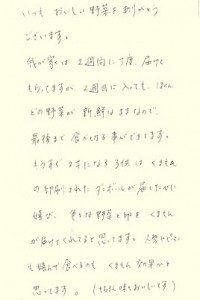 いつも おいしい野菜をありがとう
ございます。
我が家は 2週間に1度、届けて
もらってますが、2週目に入っても、ほとん
どの野菜が 新鮮なままなので、
最後まで食べ切る事ができてます。
もうすぐ 2才になる子供は くま
の印刷された ダンボールが届くたびに
喜び、 野菜と卵を くまさん
が届けてくれてると思ってます。人参
も喜んで食べるのも くまさん 効果かと
思ってます。(もちろん味もおいしいです)